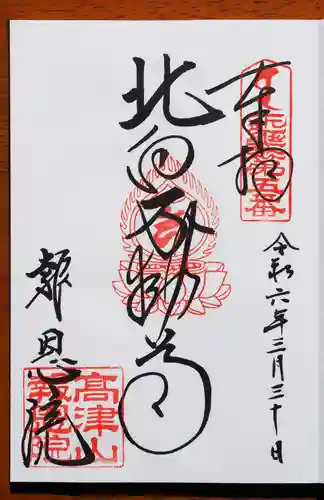 奉拝
令和六年三月三十日
北向不動尊
報恩院
高津山
報恩院